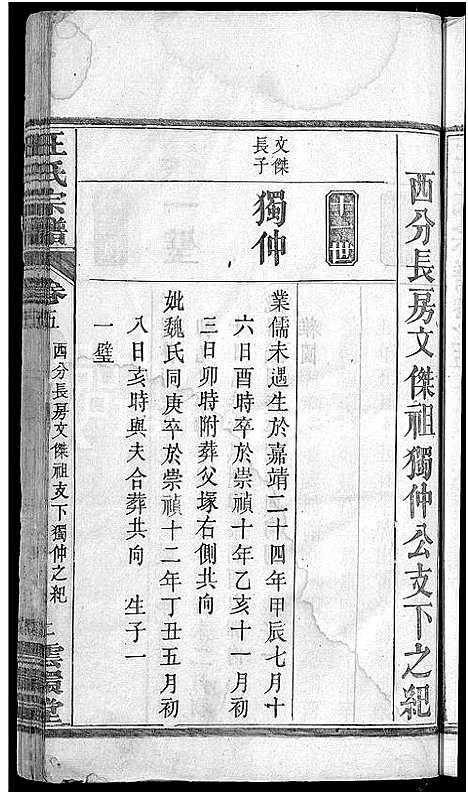 西分長房文傑祖獨仲公支下之紀
世
文傑
長子
獨仲
業儒未遇生於嘉靖二十四年甲辰七月十
六日酉時卒於崇禎十年乙亥十一月初
三日卯時附葬父塚右側共向
妣魏氏同庚卒於崇禎十二年丁丑五月初
八日亥時與夫合葬共向 生子一
一璧
氏宗譜
卷五
西分長房文傑祖支下獨仲之紀
堂